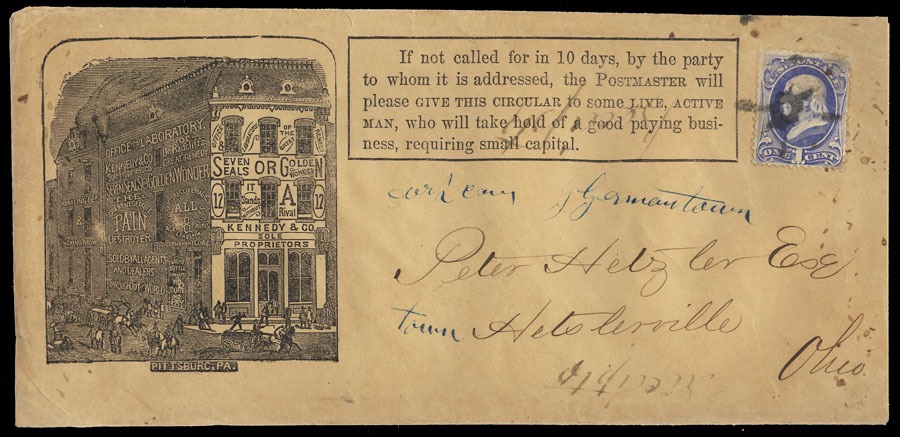 If not called for in 10 days, by the party
to whom it is addressed, the POSTMASTER will
please GIVE THIS CIRCULAR to some LIVE, ACTIVE
MAN, who will take hold of a good paying busi-
ness, requiring small capital.
U.S. POSTAGE
ONE 1 CENT
OFFICE AND LABORATORY.
KENNEDY & CO
GREAT REMEDY
SEVEN SEALS OR GOLDEN WONDER
THE
PAIN
DESTROYER
ALL
SOLD BY ALL AGENTS
AND DEALERS
THROUGHOUT WORLD
OFFICE
LABORATORY
OF THE
GREAT
SEVEN SEALS OR GOLDEN WONDER
17 IT Stands A Rival 17
KENNEDY & CO.
SOLE
PROPRIETORS
PITTSBURG, PA.
Germantown
Peter Hetzler Esq
town Hetslerville
Ohio